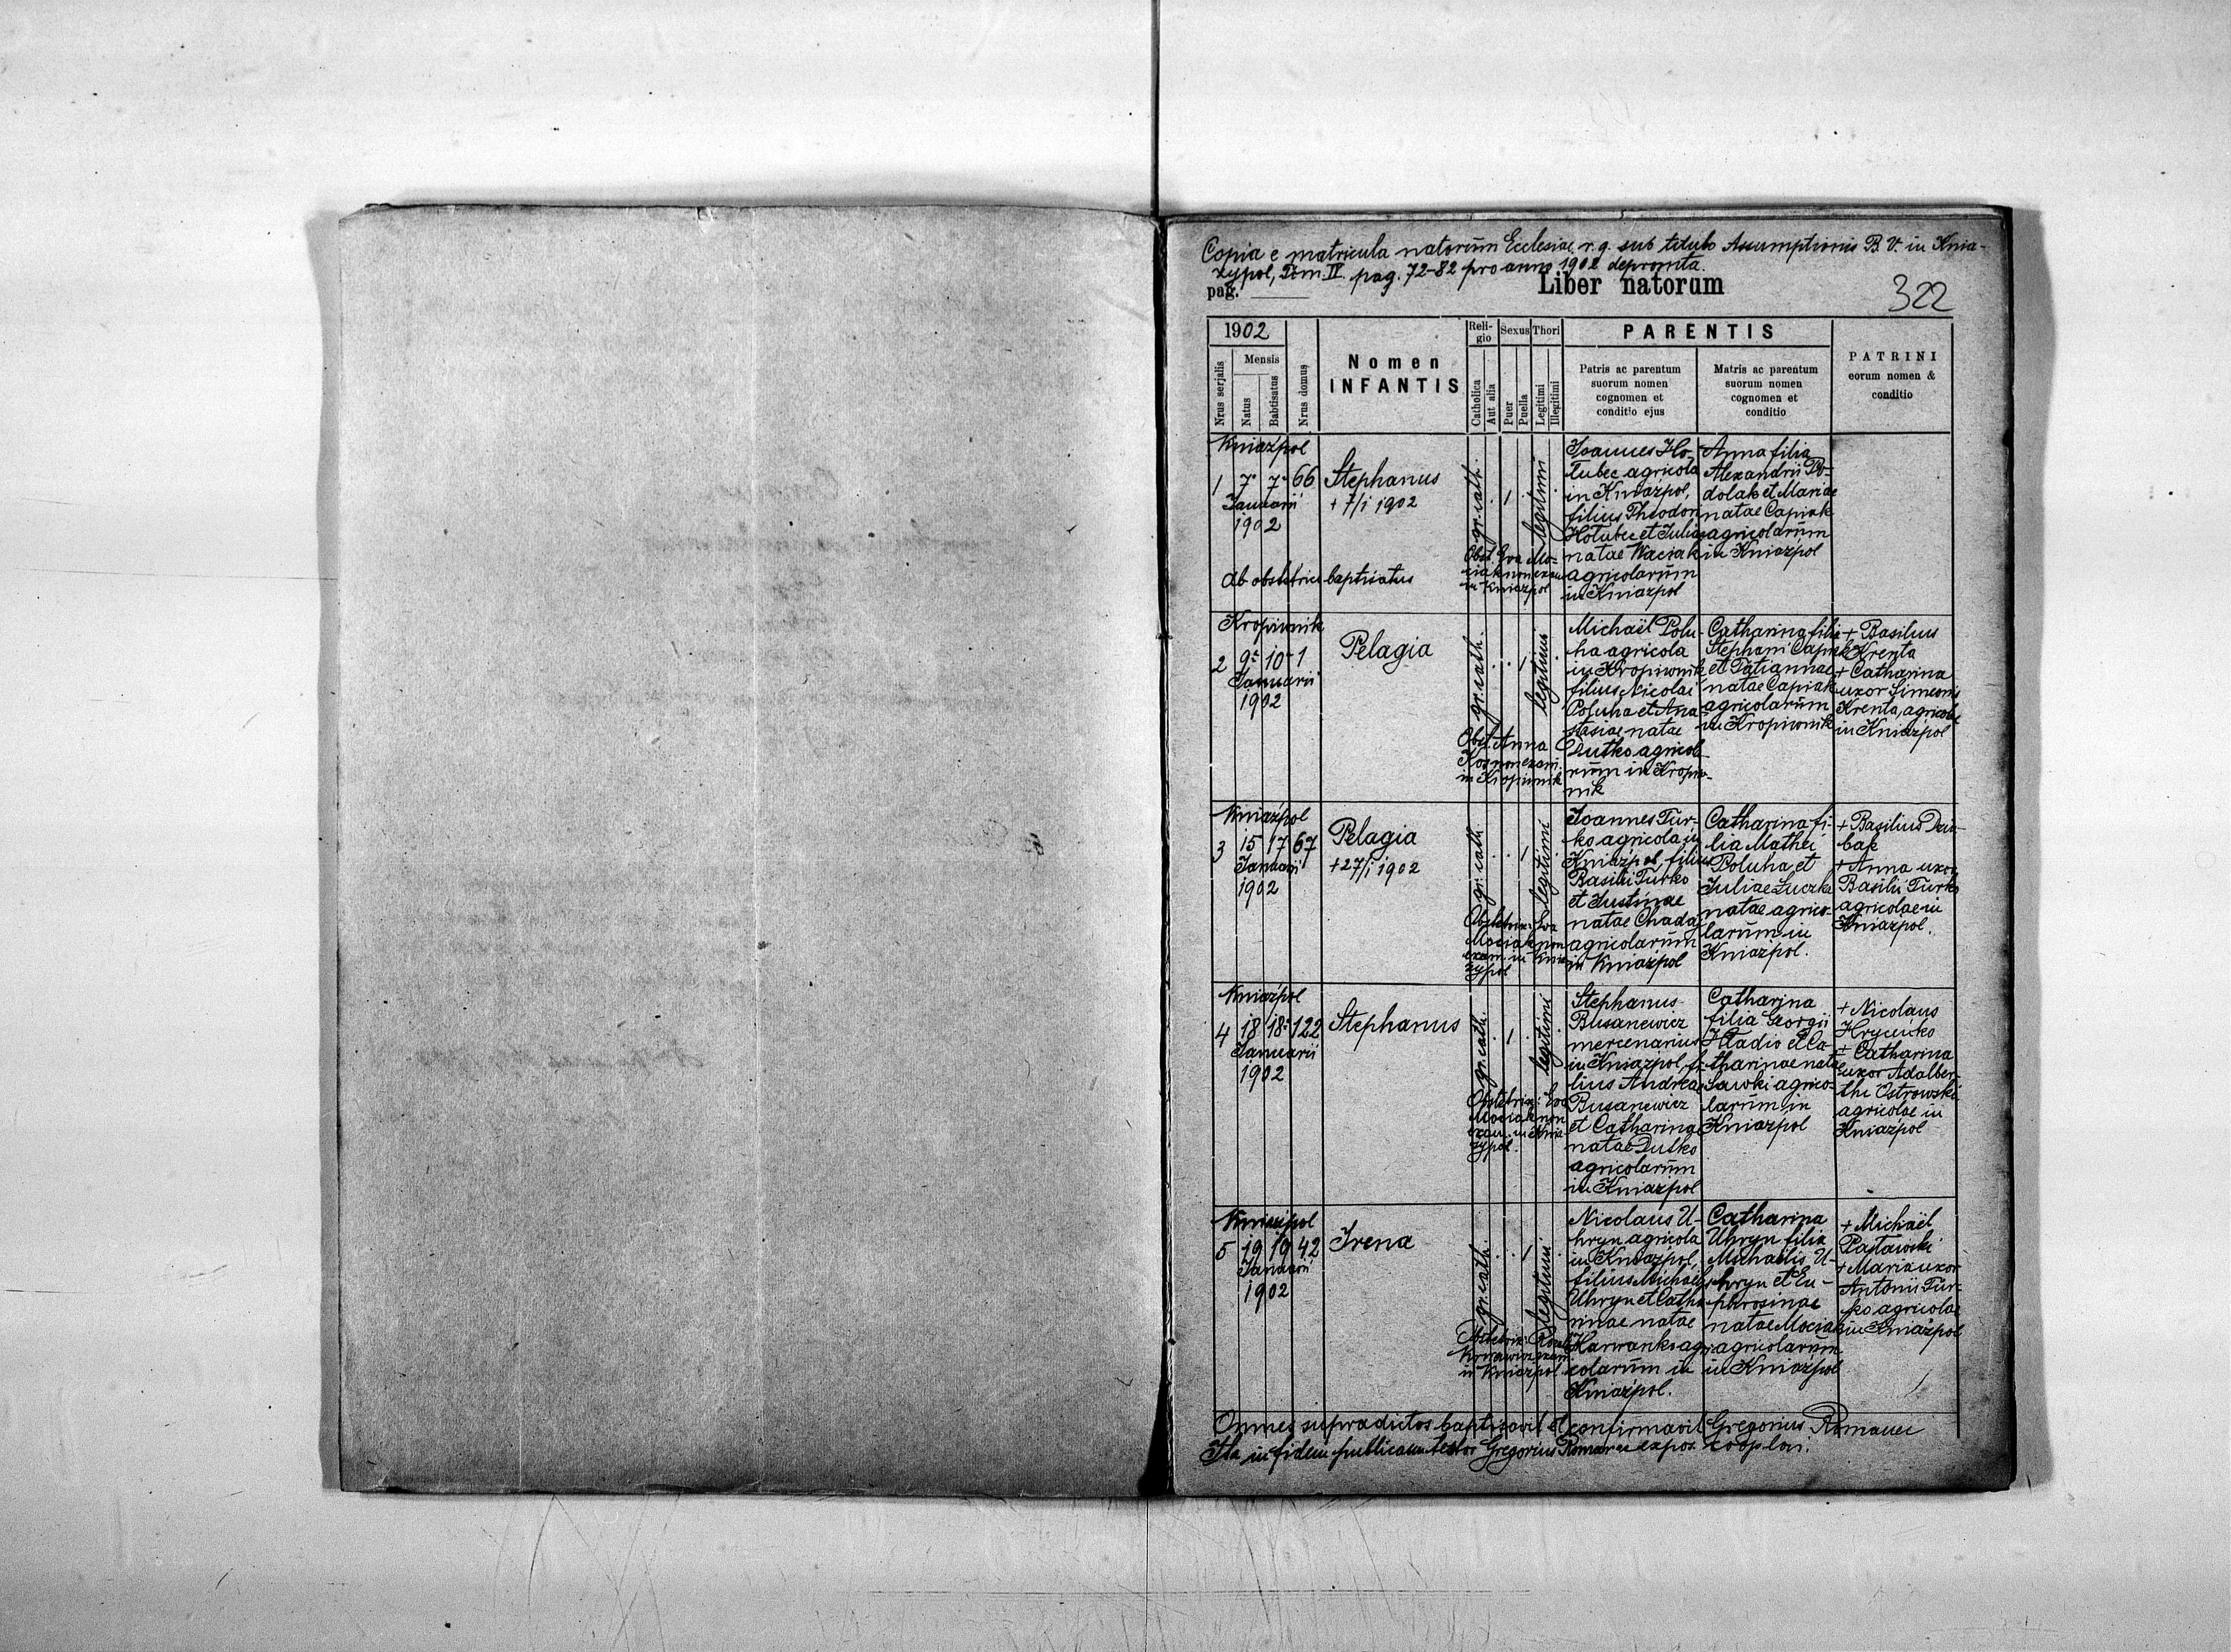 Copia e matricula natorum Ecclesiae r. g. sub titulo Assumptionis B. V. in Knia-
zypol, Tom. IV. pag. 72-82 pro anno 1902 deprompta.
pag.
Liber natorum
322
1902
Nrus serjalis
Mensis
Natus
Babtisatus
Nrus domus
Nomen
INFANTIS
Reli-
gio
Catholica
Aut alia
Sexus
Puer
Puella
Thori
Legitimi
Illegitimi
PARENTIS
Patris ac parentum
suorum nomen
cognomen et
conditio ejus
Matris ac parentum
suorum nomen
cognomen et
conditio
PATRINI
eorum nomen &
conditio
Kniaźpol
1 7. 7. 66
Januarii
1902
Stephanus
+ 7/I 1902
Ab obstetrice baptisatus
gr. cath.
1
legitimi
Obst. Eva Mo-
ciak non exam
in Kniazpol
Joannes Ho-
łubec agricola
in Kniazpol,
filius Theodori
Hołubec et Juliae
natae Waciak
agricolarum
in Kniazpol
Anna filia
Alexandrii Po-
dolak et Mariae
natae Capiak
agricolarum
in Kniazpol
Kropiwnik
2 9. 10. 1
Januarii
1902
Pelagia
gr. cath.
1
legitimi
Obst. Anna
non exam.
in Kropiwnik
Michaël Polu-
ha agricola
in Kropiwnik
filius Nicolai
Poluha et Ana-
stasiae natae
Dutko agricola-
rum in Kropiw-
nik
Catharina filia
Stephani Capiak
et Tatiannae
natae Capiak
agricolarum
in Kropiwnik
+ Basilius
Krenta
+ Catharina
uxor Simeonis
Krenta, agricolae
in Kniazpol
Kniaźpol
3 15 17 67
Januarii
1902
Pelagia
+ 27/I 1902
gr. cath.
1
legitimi
Obstetrix: Eva
Mociak non
exam. in Knia-
zypol
Joannes Tur-
ko agricola in
Kniazpol, filius
Basilii Turko
et Justinae
natae Chaday
agricolarum
in Kniazpol
Catharina fi-
lia Mathei
Poluha et
Juliae Łuczka
natae agrico-
larum in
Kniazpol.
+ Basilius Dzio-
bak
+ Anna uxor
Basilii Turko
agricolae in
Kniazpol.
Kniaźpol
4 18 18. 122
Januarii
1902
Stephanus
gr. cath.
1
legitimi
Obstetrix: Eva
Mociak non
exam. in Knia-
zypol.
Stephanus
Busanewicz
mercenarius
in Kniazpol, fi-
lius Andreae
Busanewicz
et Catharinae
natae Dutko
agricolarum
in Kniazpol
Catharina
filia Georgii
Hładio et Ca-
tharinae natae
Sawki agrico-
larum in
Kniazpol
+ Nicolaus
Hrycenko
+ Catharina
uxor Adalber-
thi Ostrowski
agricolae in
Kniazpol
Kniaźpol
5 19 19 42
Januarii
1902
Irena
gr. cath.
1
legitimi
Obstetrix:
exam.
in Kniazpol.
Nicolaus U-
hryn agricola
in Kniazpol,
filius Michaelis
Uhryn et Catha-
rinae natae
Harwanko agri-
colarum in
Kniazpol.
Catharina
Uhryn filia
Michaëlis U-
hryn et Eu-
phrosinae
natae Mociak
agricolarum
in Kniazpol
+ Michaël
Pastawski
+ Maria uxor
Antonii Tur-
ko agricolae
in Kniazpol
Omnes supradictos baptisavit et confirmavit Gregorius Romanec
Ita in fidem publicam testor Gregorius Romanec expos. coop. loci.